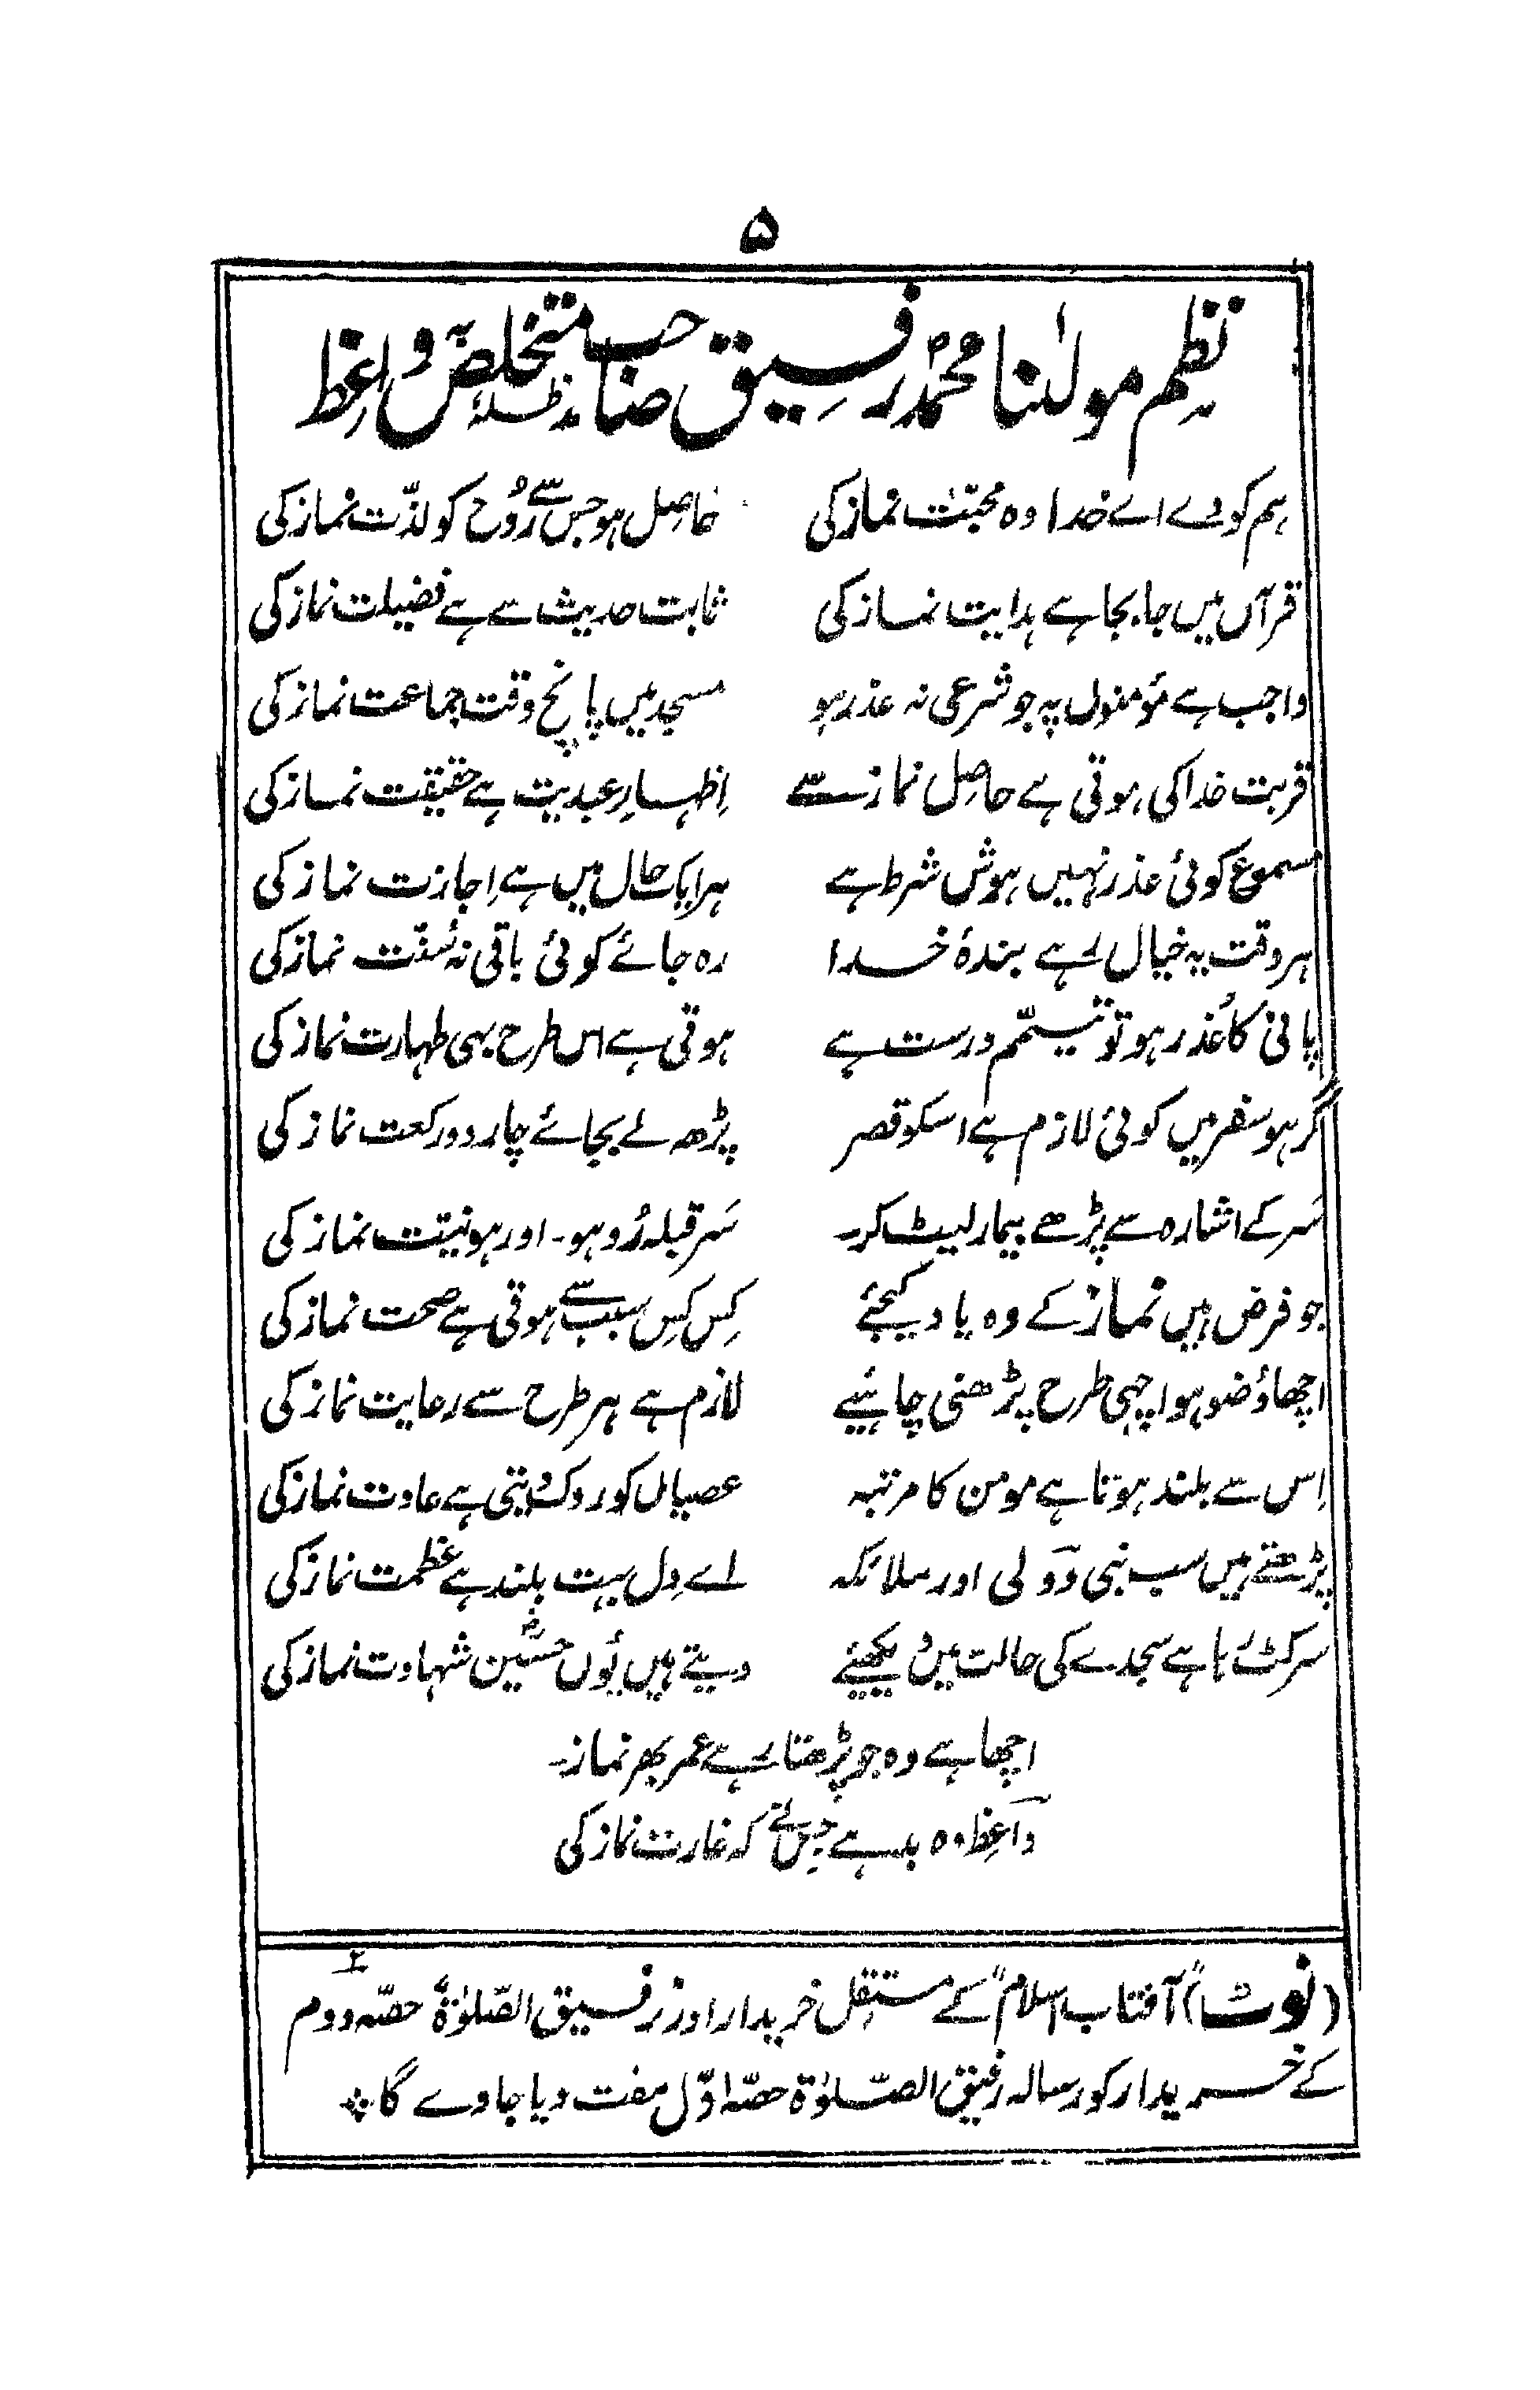 ۵
نظم مولٰنا محمدؐ رفیق صاحب مدظلہٗ متخلص واعظ
ہم کو دے اے خدا وہ محبّت نماز کی حاصِل ہو جس سے رُوح کو لذّت نماز کی
قرآں میں جا بجا ہے ہدایت نماز کی ثابت حدیث سے ہے فضیلت نماز کی
واجب ہے مؤمنوں پہ جو شرعی نہ عذر ہو مسجد میں پانچ وقت جماعت نماز کی
قربت خدا کی ہوتی ہے حاصِل نماز سے اِظہارِ عبدیت ہے حقیقت نماز کی
مسموع کوئی عذر نہیں ہوش شرط ہے ہر ایک حال میں ہے اِجازت نماز کی
ہر وقت یہ خیال رہے بندۂ خدا رہ جائے کوئی باقی نہ سُنّت نماز کی
پانی کا عُذر ہو تو تیمّم درست ہے ہوتی ہے اس طرح بھی طہارت نماز کی
گر ہو سفر میں کوئی لازم ہے اسکو قصر پڑھ لے بجائے چار دو رکعت نماز کی
سَر کے اشارہ سے پڑھے بیمار لیٹ کر۔ سَر قبلہ رُو ہو۔ اور ہو نیّت نماز کی
جو فرض ہیں نماز کے وہ یاد کیجئے کِس کِس سبب سے ہوتی ہے صحت نماز کی
اچھا وُضو ہو اچھی طرح پڑھنی چاہئیے لازم ہے ہر طرح سے رعایت نماز کی
اِس سے بلند ہوتا ہے مومن کا مرتبہ عصیاں کو روک دیتی ہے عادت نماز کی
پڑھتے ہیں سب نبی و ولی اور ملائکہ اے دِل بہت بلند ہے عظمت نماز کی
سر کٹ رہا ہے سجدے کی حالت میں دیکھئیے دیتے ہیں یُوں حسینؓ شہادت نماز کی
اچھا ہے وہ جو پڑھتا رہے عمر بھر نماز۔
واعِظ وہ بد ہے جِس نے کہ غارت نماز کی
(نوٹ) "آفتاب اسلام" کے مستقِل خریدار اور رفیق الصّلوٰۃ حصّہ دوم
کے خریدار کو رسالہ رفیق الصّلوٰۃ حصّہ اوّل مفت دیا جاوے گا